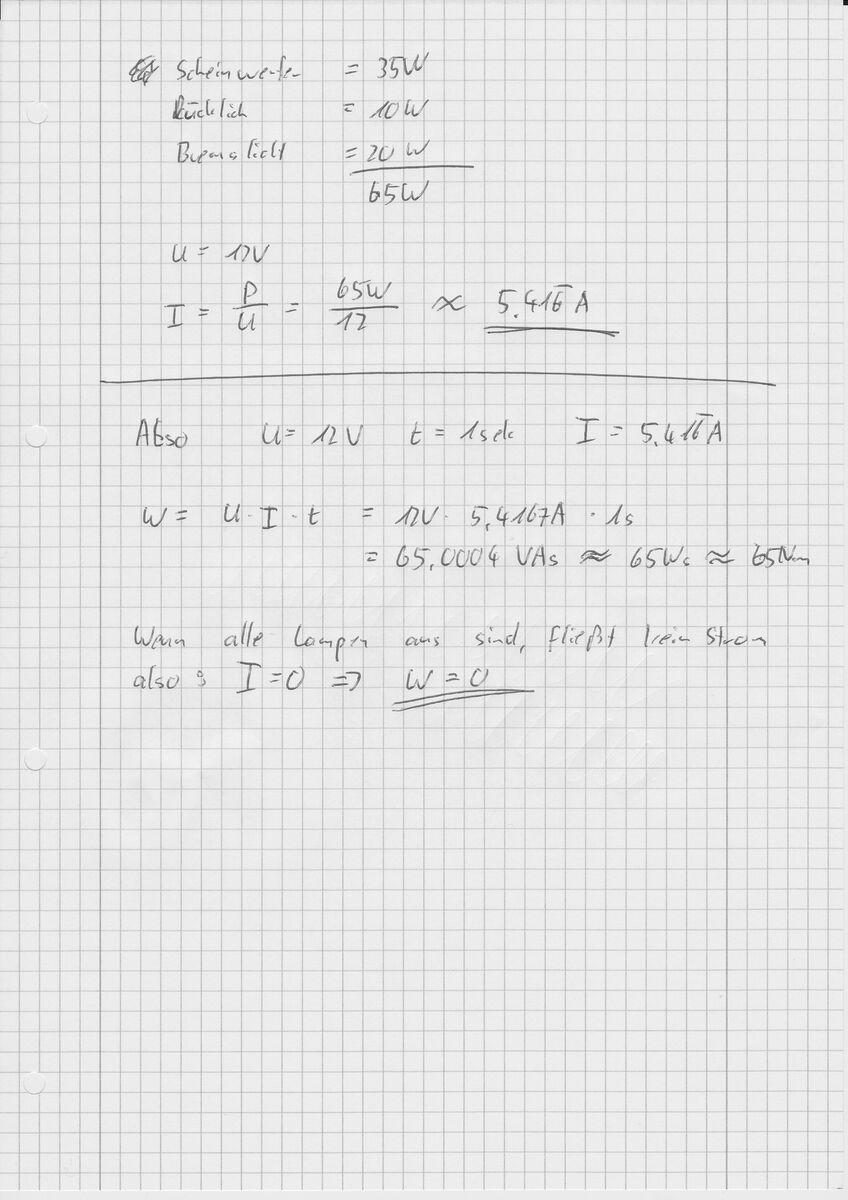 Scheinwerfer = 35W
Rücklich = 10W
Bremslicht = 20 W
65W
U = 12V
I = P/U = 65W/12 ∝ 5.416̅ A
Also U = 12V t = 1sek I = 5.416̅ A
W = U · I · t = 12V · 5,4167A · 1s
= 65,0004 VAs ≈ 65Ws ≈ 65Nm
Wenn alle Lampen aus sind, fließt kein Strom
also: I = 0 => W = 0